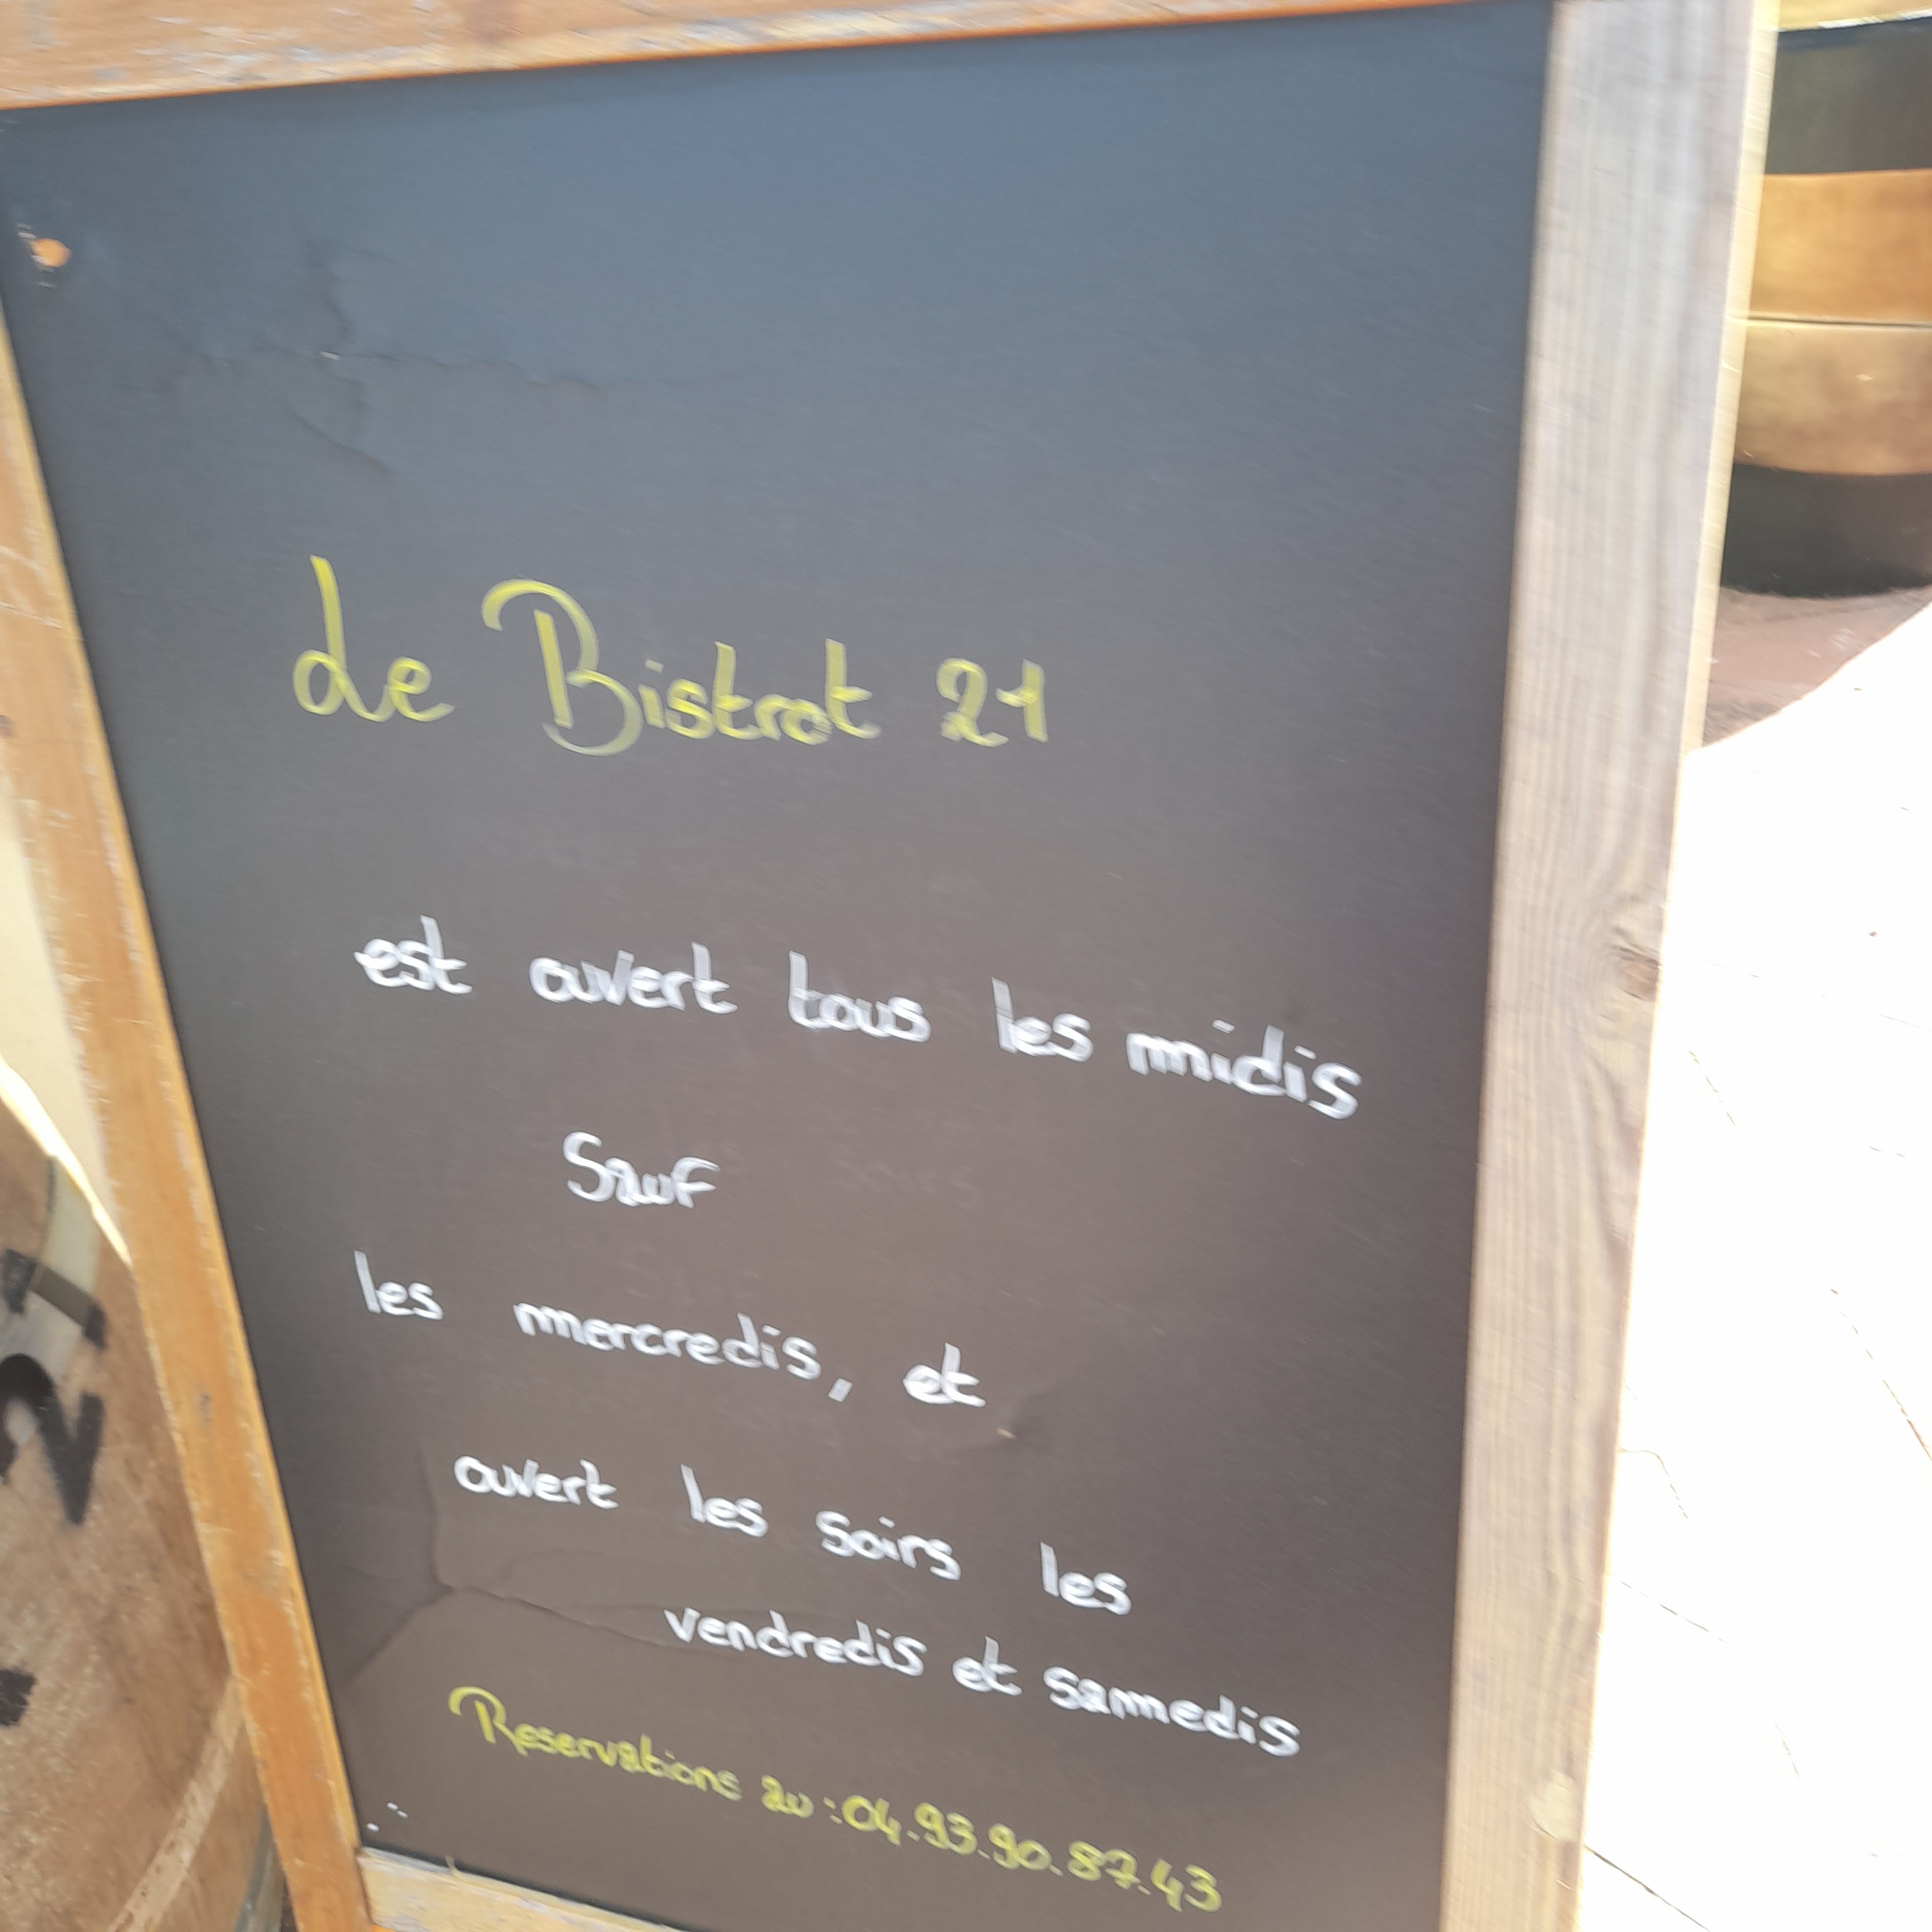 Le Bistrot 21
est ouvert tous les midis
Sauf
les mercredis, et
ouvert les soirs les
vendredis et samedis
Reservations au : 04.93.90.87.43
2